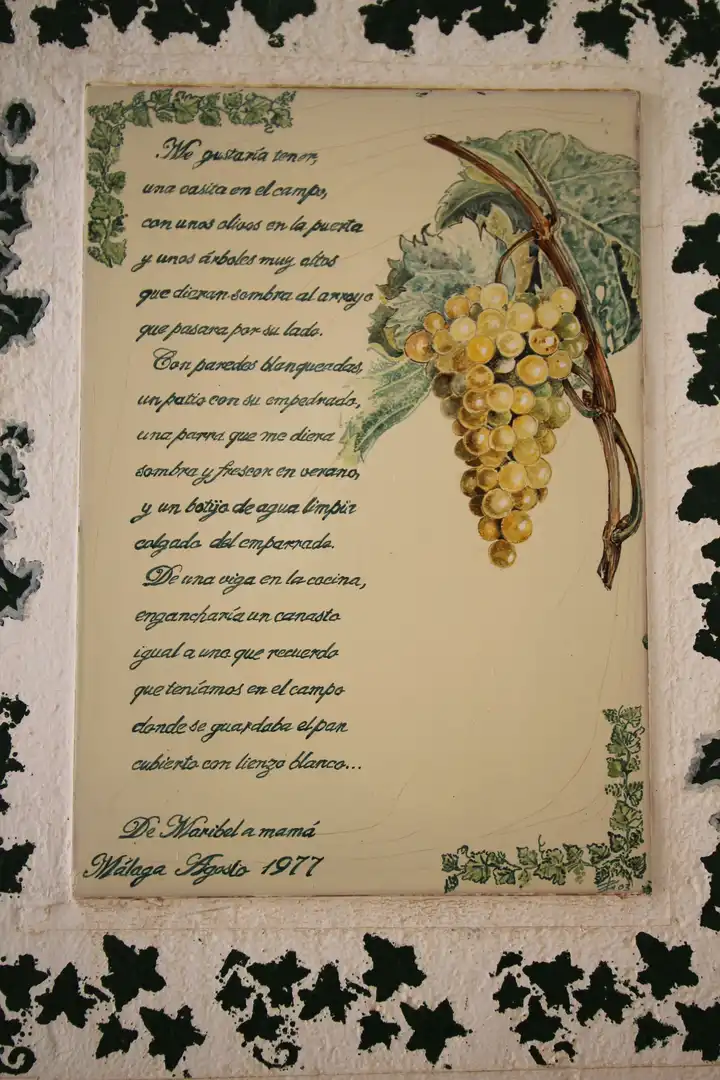 Me gustaría tener,
una casita en el campo,
con unos olivos en la puerta
y unos árboles muy altos
que dieran sombra al arroyo
que pasara por su lado.
Con paredes blanqueadas,
un patio con su empedrado,
una parra que me diera
sombra y frescor en verano,
y un botijo de agua limpia
colgado del emparrado.
De una viga en la cocina,
engancharía un canasto
igual a uno que recuerdo
que teníamos en el campo
donde se guardaba el pan
cubierto con lienzo blanco...
De Maribel a mamá
Málaga Agosto 1977